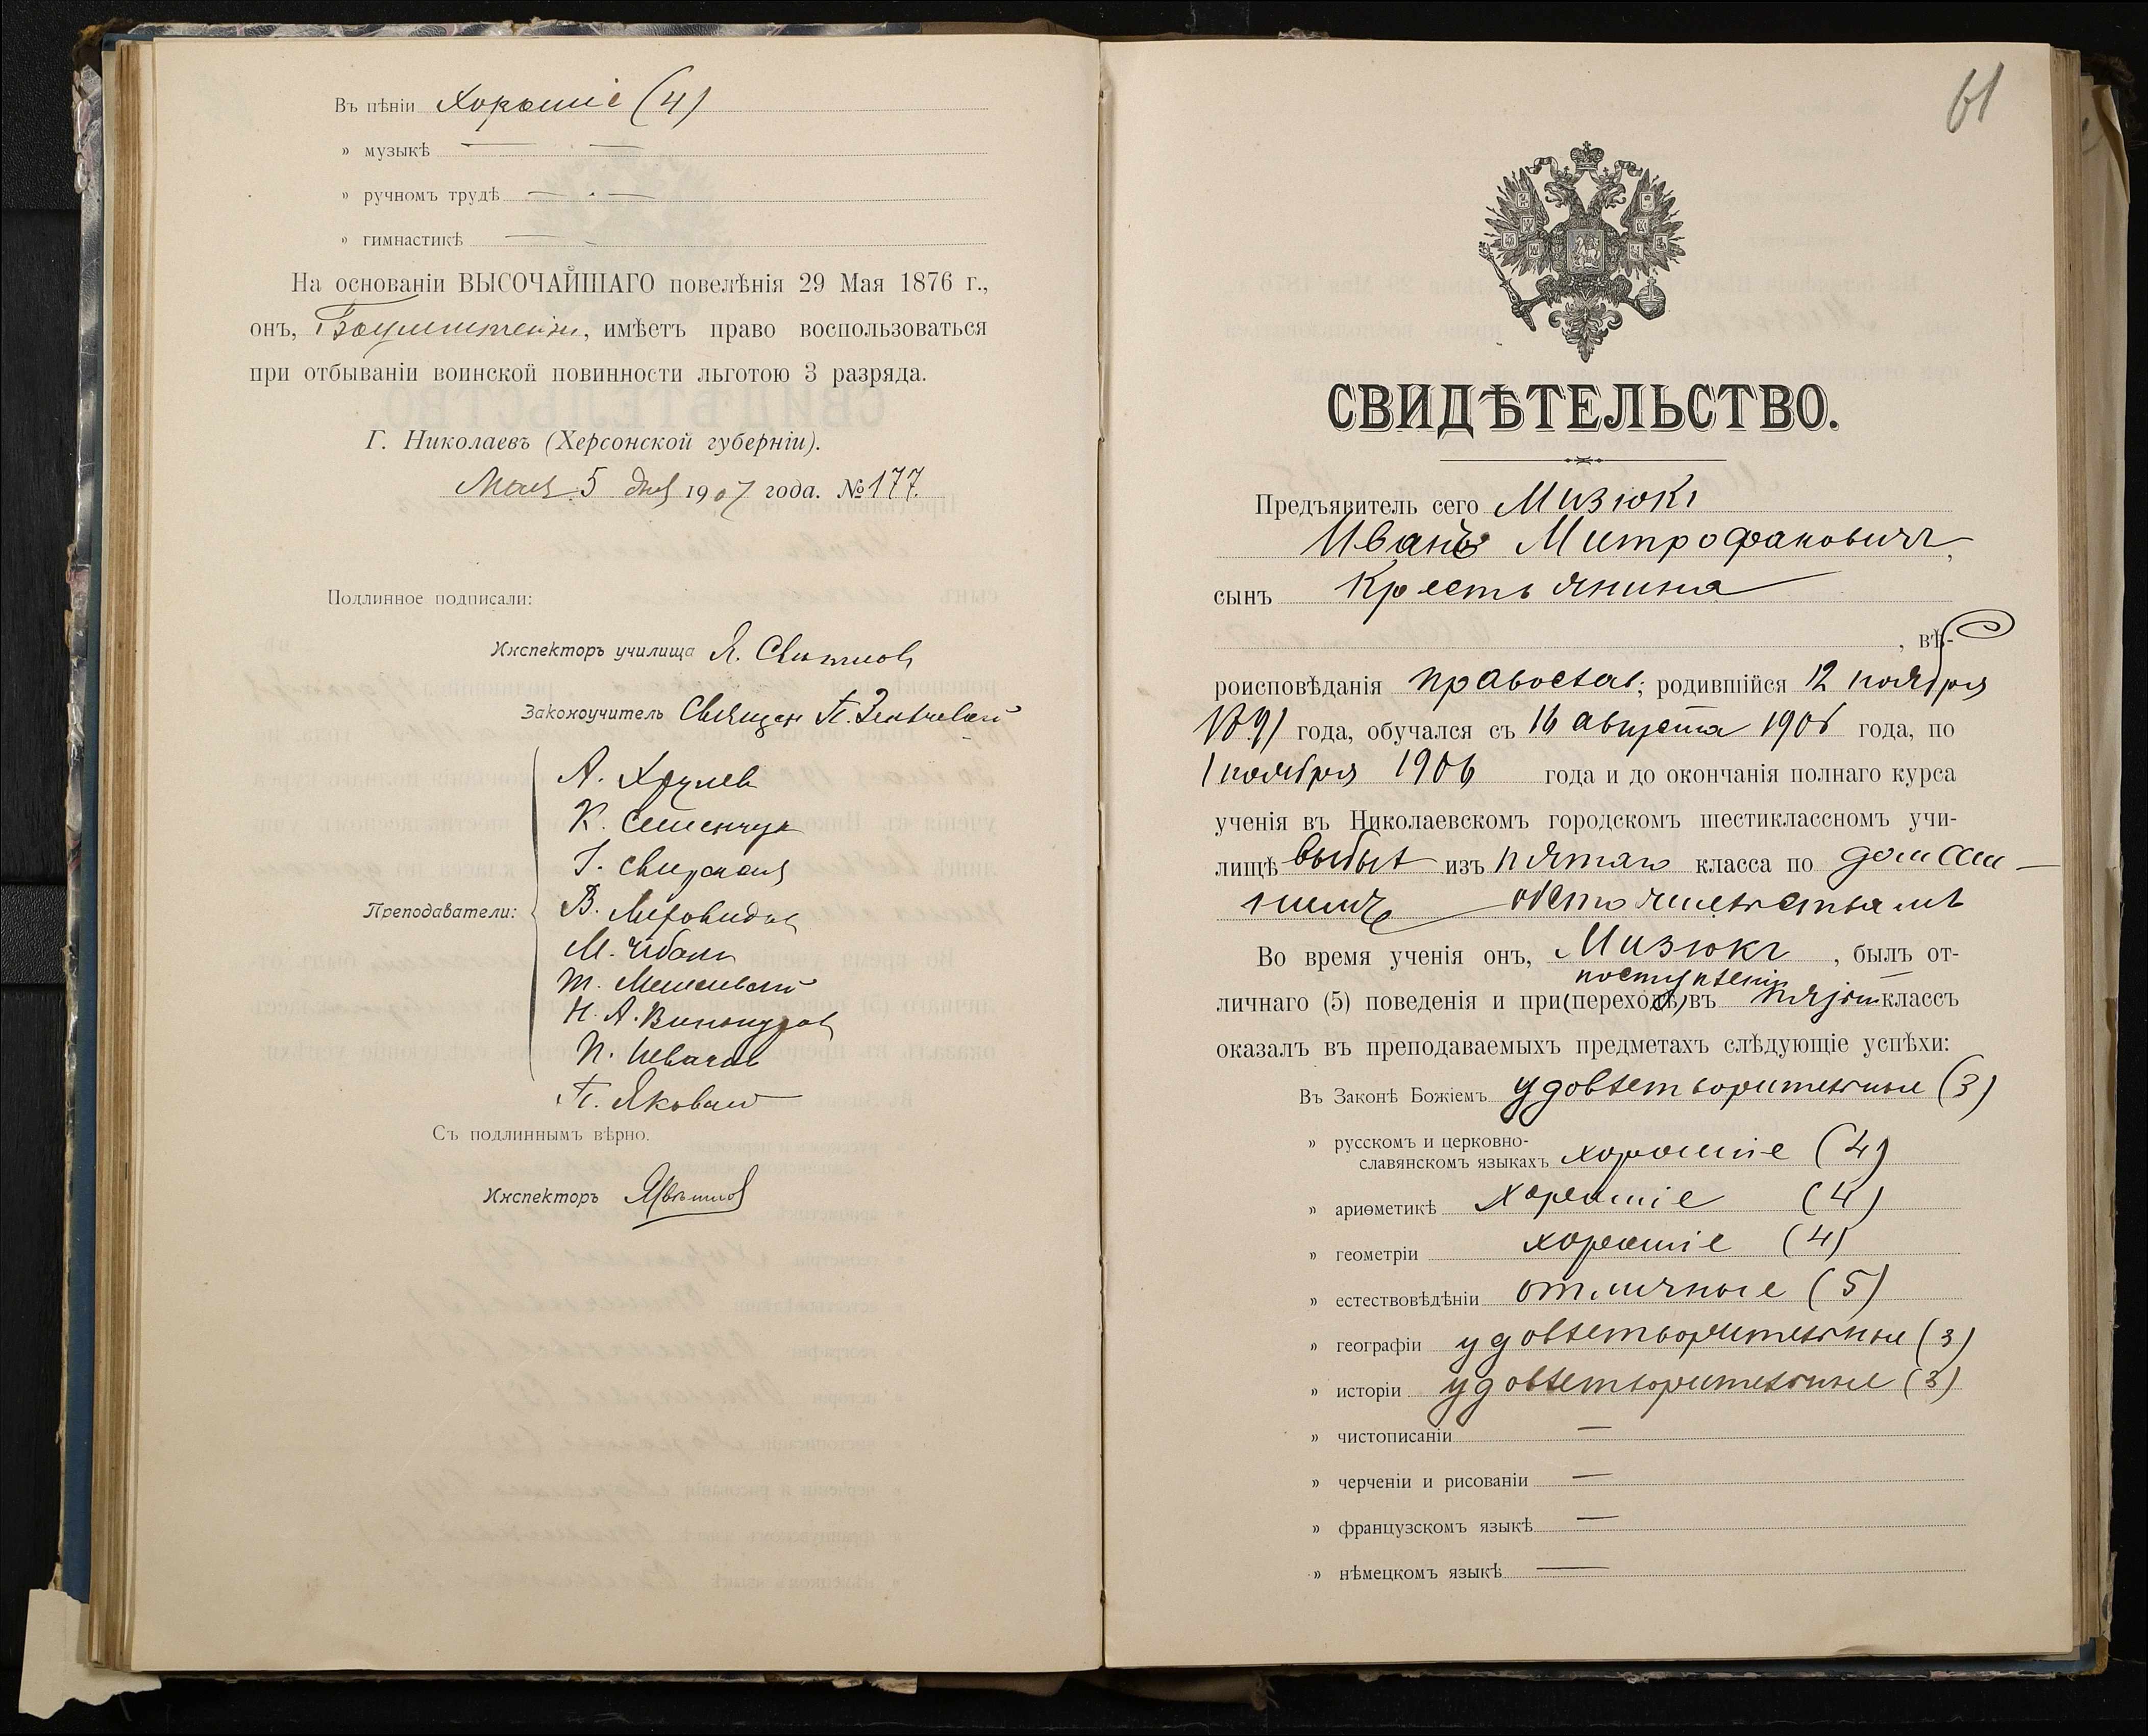 Въ пѣніи хорошіе (4)
» музыкѣ — —
» ручномъ трудѣ — —
» гимнастикѣ —
На основаніи ВЫСОЧАЙШАГО повелѣнія 29 Мая 1876 г.,
онъ, Баумштейн, имѣетъ право воспользоваться
при отбываніи воинской повинности льготою 3 разряда.
Г. Николаевъ (Херсонской губерніи).
Мая 5 дня 1907 года. № 177.
Подлинное подписали:
Инспекторъ училища Я.
Законоучитель Священ П.
А. Хрулев
К. Семенчук
В.
Преподаватели:
М.
Т.
Н. А. Виноградов
П. Ивачов
П.
Съ подлиннымъ вѣрно.
Инспекторъ
61
СВИДѢТЕЛЬСТВО.
Предъявитель сего Мизюкъ
Иванъ Митрофановичъ,
сынъ Крестьянина
, вѣ-
роисповѣданія православ; родившійся 12 ноября
1891 года, обучался съ 16 августа 1906 года, по
1 ноября 1906 года и до окончанія полнаго курса
ученія въ Николаевскомъ городскомъ шестиклассномъ учи-
лищѣ выбыл изъ пятаго класса по домаш-
нимъ обстоятельствамъ
Во время ученія онъ, Мизюкъ, былъ от-
поступленіи
личнаго (5) поведенія и при (переходѣ) въ пятый классъ
оказалъ въ преподаваемыхъ предметахъ слѣдующіе успѣхи:
Въ Законѣ Божіемъ удовлетворительные (3)
» русскомъ и церковно-
славянскомъ языкахъ хорошіе (4)
» ариѳметикѣ хорошіе (4)
» геометріи хорошіе (4)
» естествовѣдѣніи отличные (5)
» географіи удовлетворительные (3)
» исторіи удовлетворительные (3)
» чистописаніи —
» черченіи и рисованіи —
» французскомъ языкѣ —
» нѣмецкомъ языкѣ —